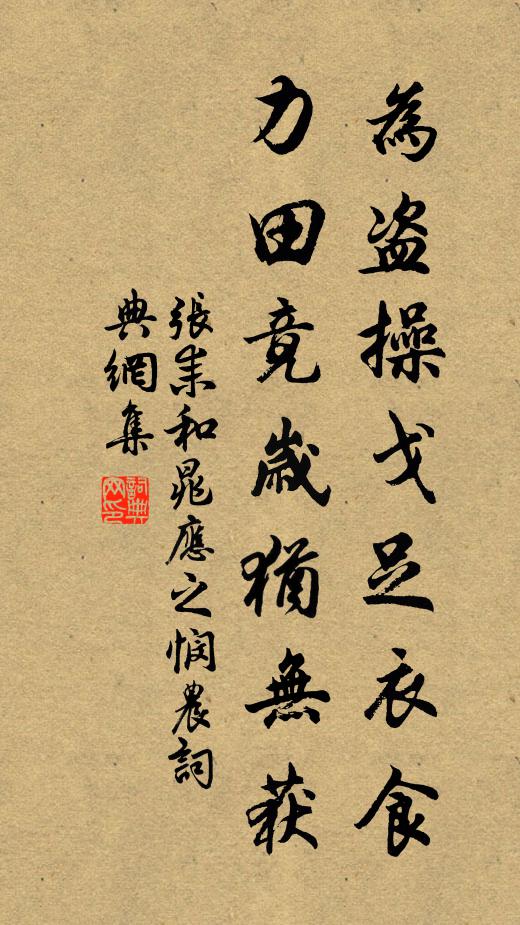 為盗操戈足衣食
力田竟歲猶無获
張耒和晁應之憫農詞
典網集
詞典網印